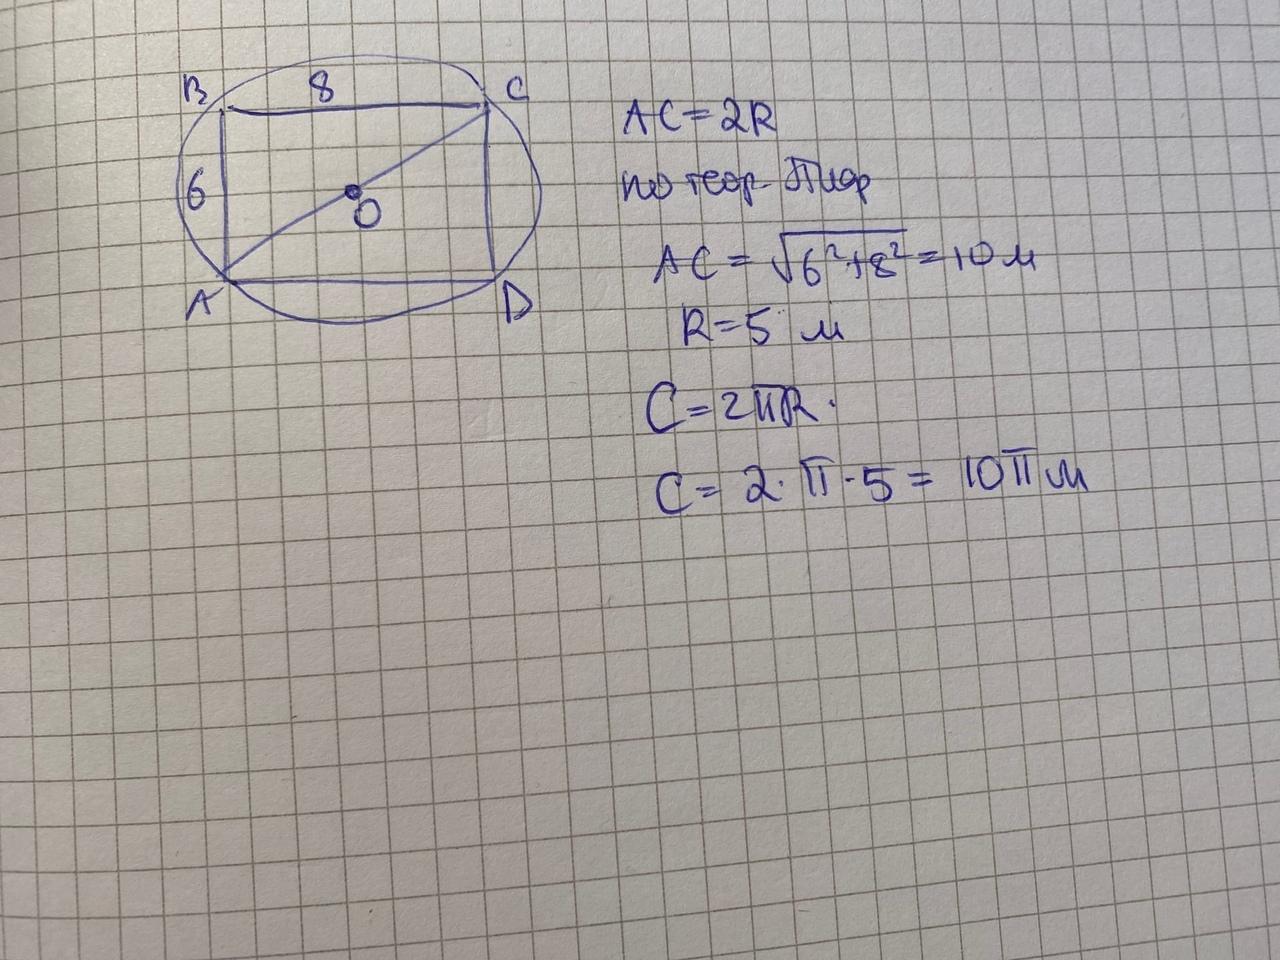 B 8 C
6
O
A D
AC = 2R
по теор. Пиф
AC = √6²+8² = 10 м
R = 5 м
C = 2πR.
C = 2 · π · 5 = 10π м